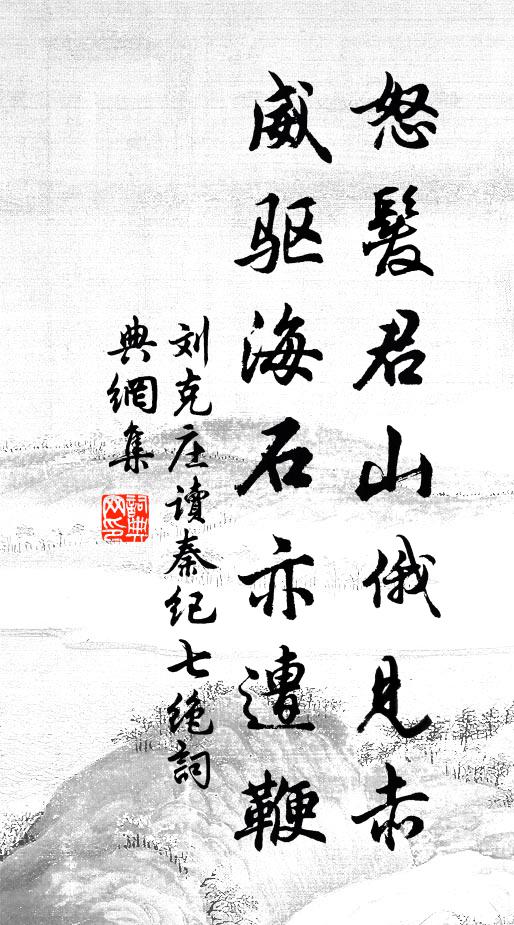 怒髮君山俄見赤
威驱海石亦遭鞭
刘克庄读秦纪七绝詞
典網集
詞典网印